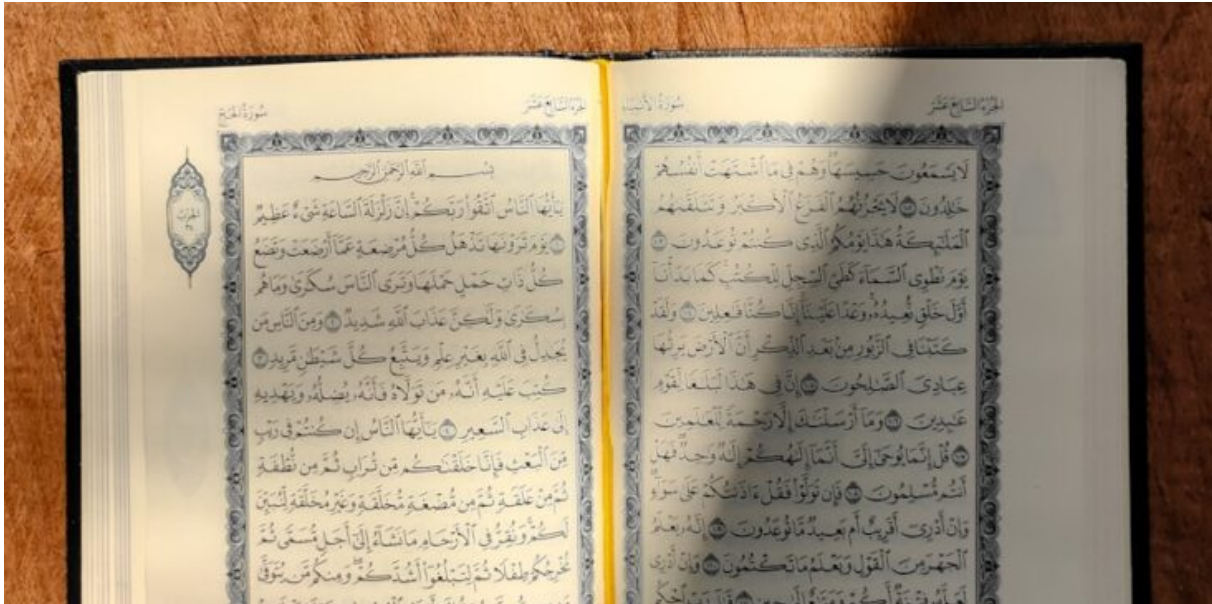 الجزء السابع عشر
سورة الأنبياء
لَا يَسْمَعُونَ حَسِيسَهَا وَهُمْ فِي مَا ٱشْتَهَتْ أَنفُسُهُمْ
خَٰلِدُونَ ١٠٢ لَا يَحْزُنُهُمُ ٱلْفَزَعُ ٱلْأَكْبَرُ وَتَتَلَقَّىٰهُمُ
ٱلْمَلَٰٓئِكَةُ هَٰذَا يَوْمُكُمُ ٱلَّذِي كُنتُمْ تُوعَدُونَ ١٠٣
يَوْمَ نَطْوِي ٱلسَّمَآءَ كَطَيِّ ٱلسِّجِلِّ لِلْكُتُبِ كَمَا بَدَأْنَآ
أَوَّلَ خَلْقٍ نُّعِيدُهُۥ وَعْدًا عَلَيْنَآ إِنَّا كُنَّا فَٰعِلِينَ ١٠٤ وَلَقَدْ
كَتَبْنَا فِي ٱلزَّبُورِ مِنۢ بَعْدِ ٱلذِّكْرِ أَنَّ ٱلْأَرْضَ يَرِثُهَا
عِبَادِيَ ٱلصَّٰلِحُونَ ١٠٥ إِنَّ فِي هَٰذَا لَبَلَٰغًا لِّقَوْمٍ
عَٰبِدِينَ ١٠٦ وَمَآ أَرْسَلْنَٰكَ إِلَّا رَحْمَةً لِّلْعَٰلَمِينَ
١٠٧ قُلْ إِنَّمَا يُوحَىٰٓ إِلَيَّ أَنَّمَآ إِلَٰهُكُمْ إِلَٰهٌ وَٰحِدٌ فَهَلْ
أَنتُم مُّسْلِمُونَ ١٠٨ فَإِن تَوَلَّوْا۟ فَقُلْ ءَاذَنتُكُمْ عَلَىٰ سَوَآءٍ
وَإِنْ أَدْرِيٓ أَقَرِيبٌ أَم بَعِيدٌ مَّا تُوعَدُونَ ١٠٩ إِنَّهُۥ يَعْلَمُ
ٱلْجَهْرَ مِنَ ٱلْقَوْلِ وَيَعْلَمُ مَا تَكْتُمُونَ ١١٠ وَإِنْ أَدْرِي
لَعَلَّهُۥ فِتْنَةٌ لَّكُمْ وَمَتَٰعٌ إِلَىٰ حِينٍ ١١١ قَٰلَ رَبِّ ٱحْكُم
الجزء السابع عشر
سورة الحج
الحزب
٣٤
بِسْمِ ٱللَّهِ ٱلرَّحْمَٰنِ ٱلرَّحِيمِ
يَٰٓأَيُّهَا ٱلنَّاسُ ٱتَّقُوا۟ رَبَّكُمْ إِنَّ زَلْزَلَةَ ٱلسَّاعَةِ شَيْءٌ عَظِيمٌ
١ يَوْمَ تَرَوْنَهَا تَذْهَلُ كُلُّ مُرْضِعَةٍ عَمَّآ أَرْضَعَتْ وَتَضَعُ
كُلُّ ذَاتِ حَمْلٍ حَمْلَهَا وَتَرَى ٱلنَّاسَ سُكَٰرَىٰ وَمَا هُم
بِسُكَٰرَىٰ وَلَٰكِنَّ عَذَابَ ٱللَّهِ شَدِيدٌ ٢ وَمِنَ ٱلنَّاسِ مَن
يُجَٰدِلُ فِي ٱللَّهِ بِغَيْرِ عِلْمٍ وَيَتَّبِعُ كُلَّ شَيْطَٰنٍ مَّرِيدٍ ٣
كُتِبَ عَلَيْهِ أَنَّهُۥ مَن تَوَلَّاهُ فَأَنَّهُۥ يُضِلُّهُۥ وَيَهْدِيهِ
إِلَىٰ عَذَابِ ٱلسَّعِيرِ ٤ يَٰٓأَيُّهَا ٱلنَّاسُ إِن كُنتُمْ فِي رَيْبٍ
مِّنَ ٱلْبَعْثِ فَإِنَّا خَلَقْنَٰكُم مِّن تُرَابٍ ثُمَّ مِن نُّطْفَةٍ
ثُمَّ مِنْ عَلَقَةٍ ثُمَّ مِن مُّضْغَةٍ مُّخَلَّقَةٍ وَغَيْرِ مُخَلَّقَةٍ لِّنُبَيِّنَ
لَكُمْ وَنُقِرُّ فِي ٱلْأَرْحَامِ مَا نَشَآءُ إِلَىٰٓ أَجَلٍ مُّسَمًّى ثُمَّ
نُخْرِجُكُمْ طِفْلًا ثُمَّ لِتَبْلُغُوٓا۟ أَشُدَّكُمْ وَمِنكُم مَّن يُتَوَفَّىٰ